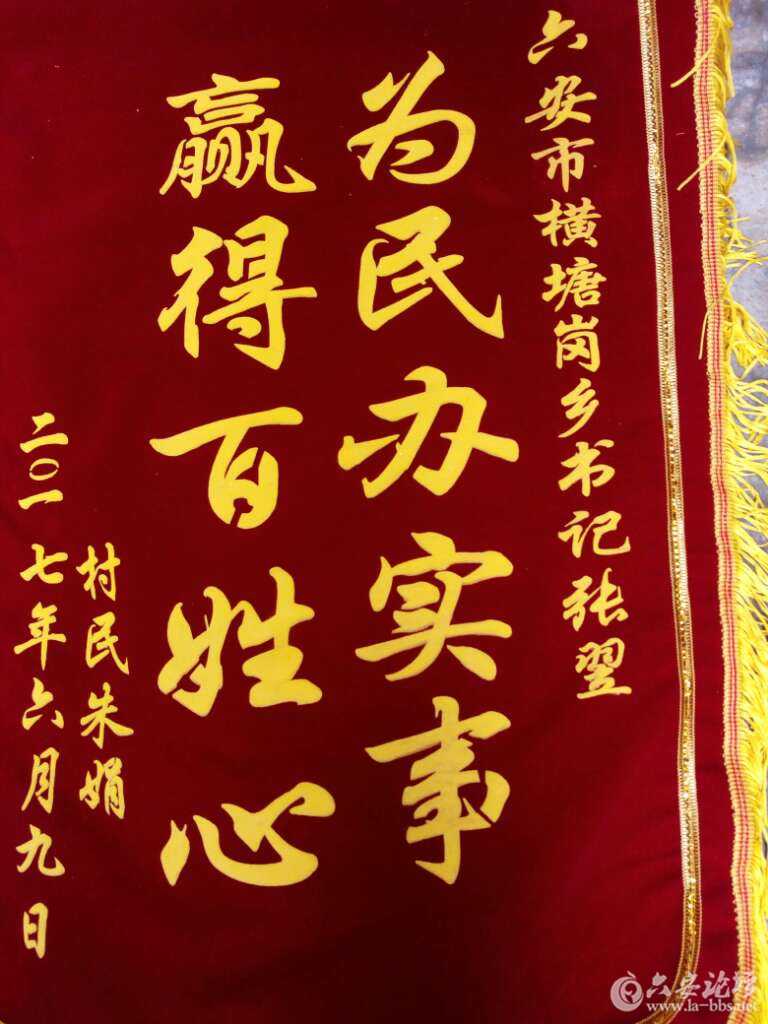 六安市横塘岗乡书记张翌
为民办实事
赢得百姓心
村民朱娟
二〇一七年六月九日
六安论坛
www.la-bbs.net